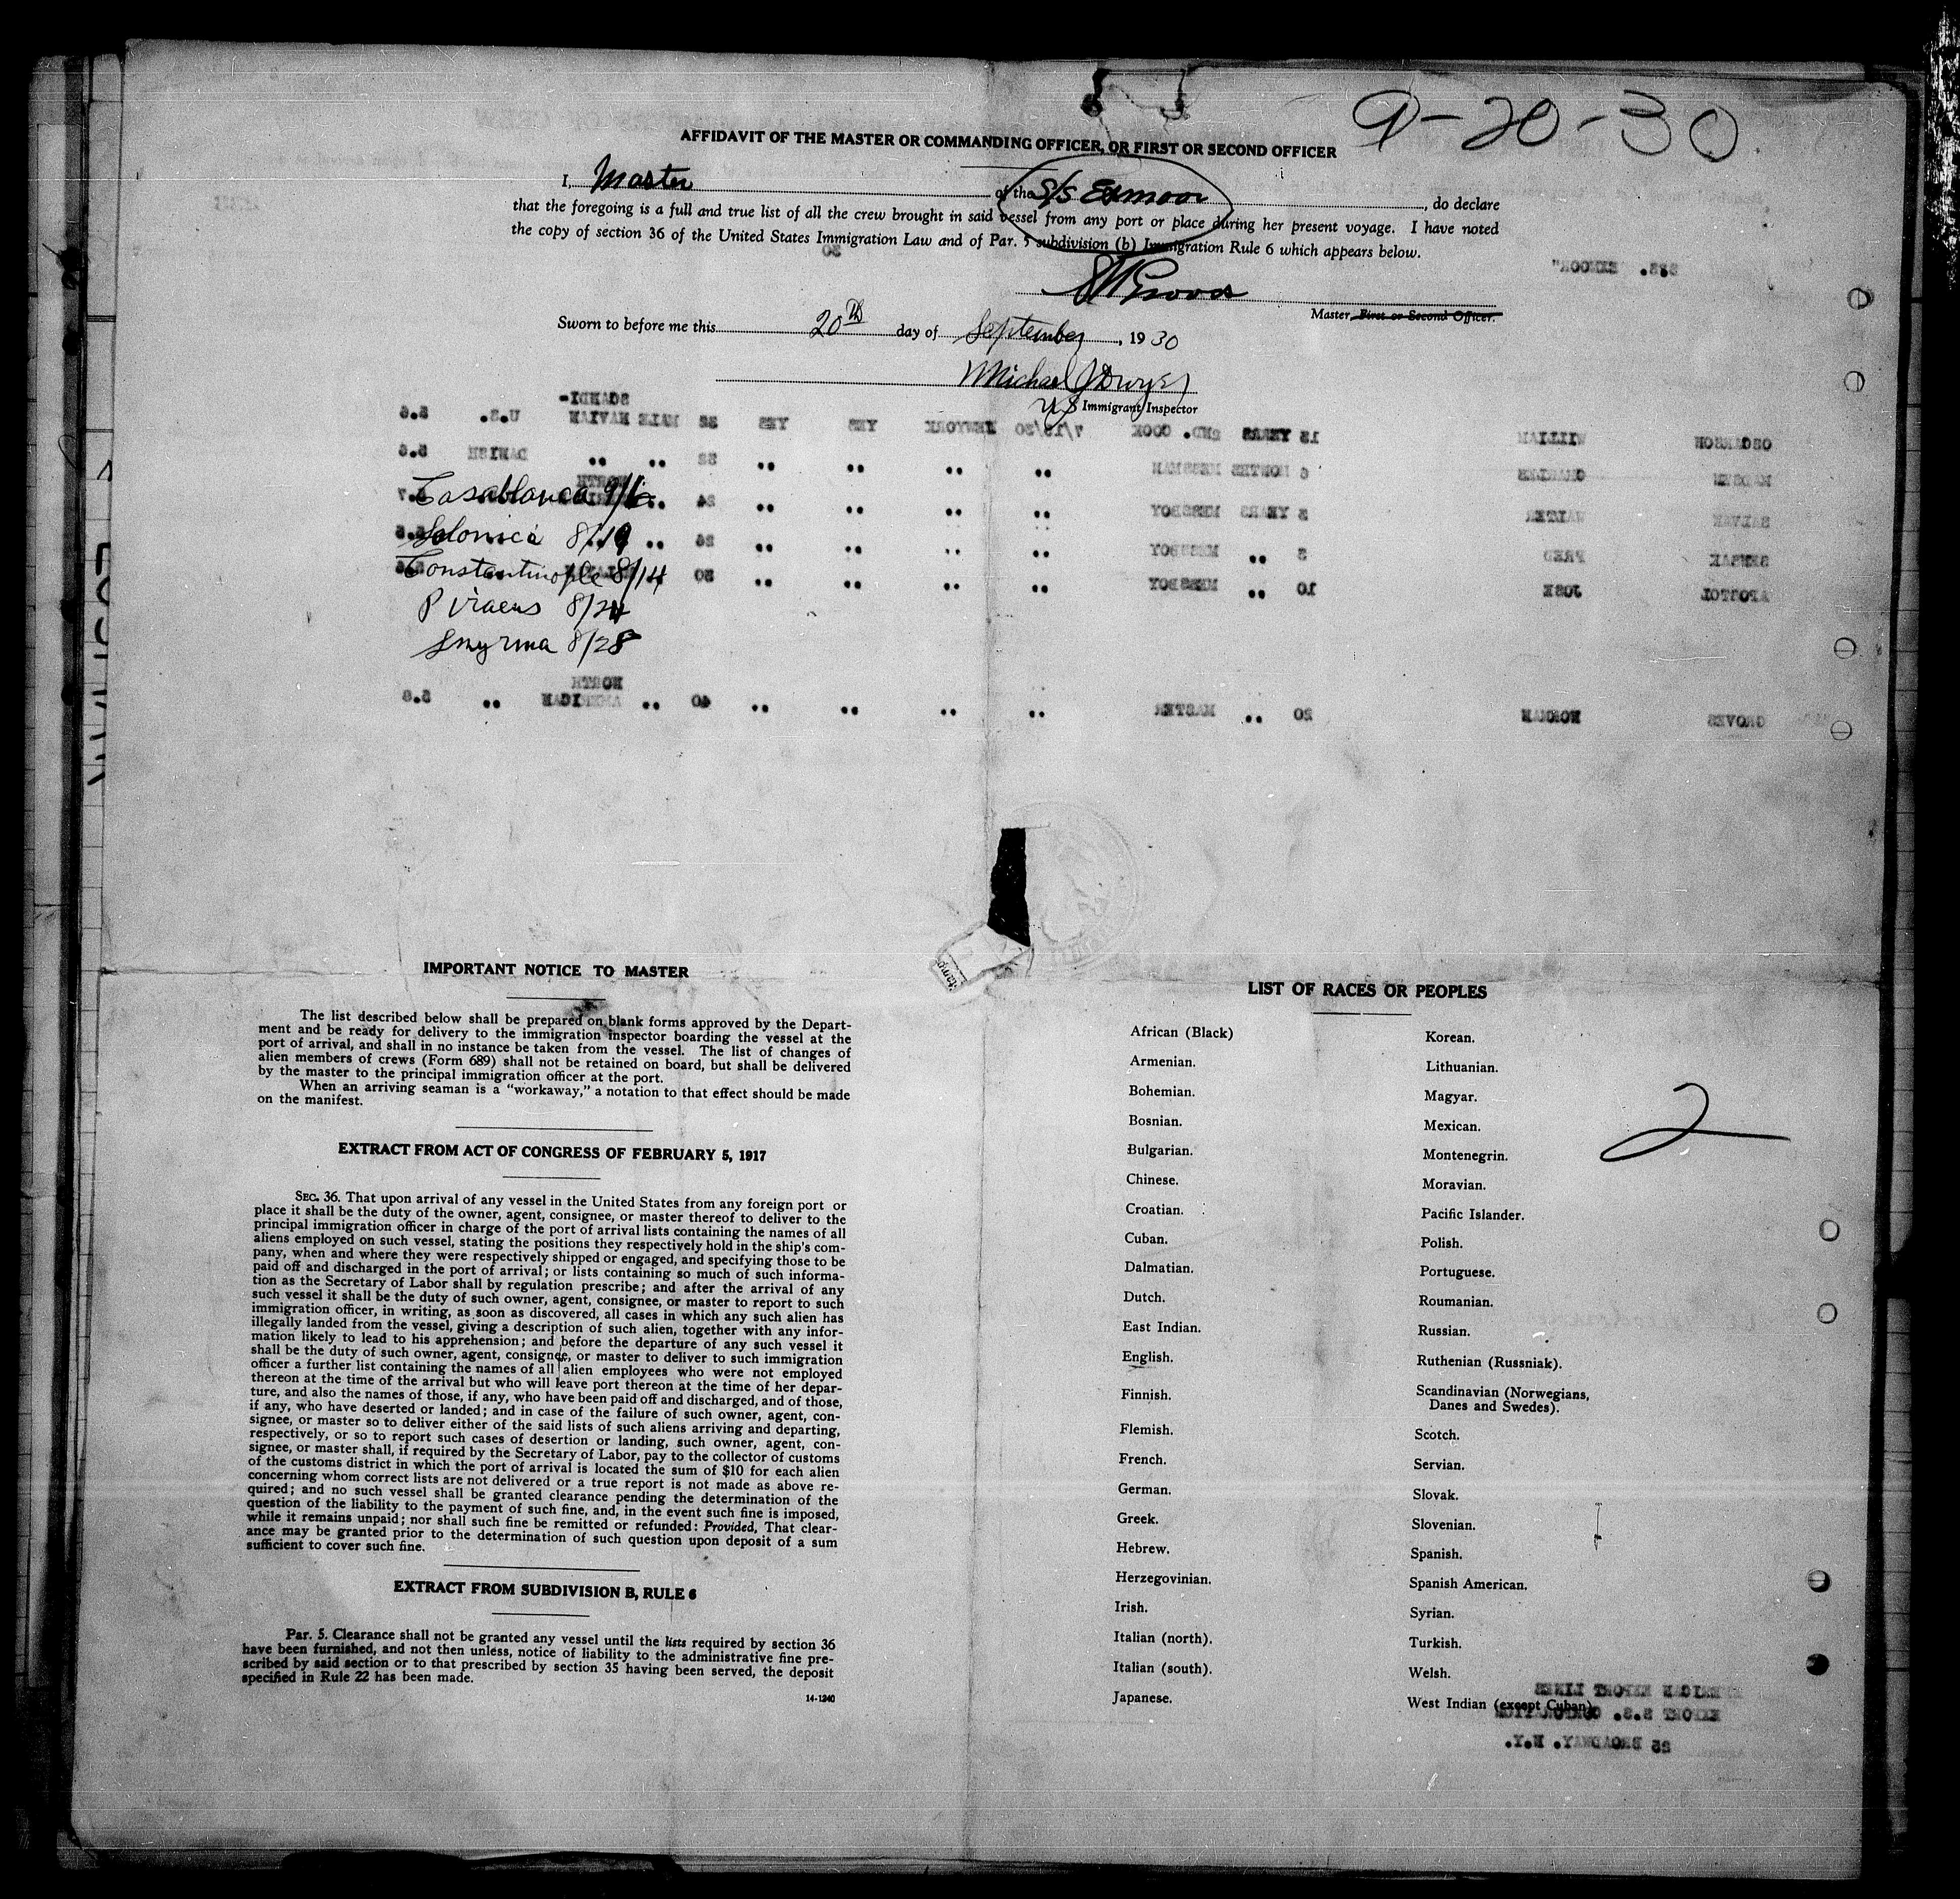 9-20-30
AFFIDAVIT OF THE MASTER OR COMMANDING OFFICER, OR FIRST OR SECOND OFFICER
I, Master of the S/S Exmoor, do declare
that the foregoing is a full and true list of all the crew brought in said vessel from any port or place during her present voyage. I have noted
the copy of section 36 of the United States Immigration Law and of Par. 5 subdivision (b) Immigration Rule 6 which appears below.
S.S. "EXMOOR"
Master, First or Second Officer.
Sworn to before me this 20th day of September, 1930
Michael J Dwyer
US Immigrant Inspector
OSCARSON WILLIAM 13 YEARS 2ND. COOK 7/19/30 NEWYORK YES YES 32 MALE SCANDI-NAVIAN U.S. 5.6
MADSEN CHARLES 6 MONTHS MESSMAN " " " " 32 " " DANISH 5.6
WALTER 3 YEARS MESSBOY " " " " 24 " NORTH
FRED 3 " MESSBOY " " " " 26 "
JOSE 10 " MESSBOY " " " " 30
Casablanca 9/6
Salonica 8/19
Constantinople 8/14
Piraeus 8/24
Smyrna 8/28
GROVES NORMAN 20 " MASTER " " " " 40 " NORTH AMERICAN " 5.8
IMPORTANT NOTICE TO MASTER
The list described below shall be prepared on blank forms approved by the Depart-
ment and be ready for delivery to the immigration inspector boarding the vessel at the
port of arrival, and shall in no instance be taken from the vessel. The list of changes of
alien members of crews (Form 689) shall not be retained on board, but shall be delivered
by the master to the principal immigration officer at the port.
When an arriving seaman is a "workaway," a notation to that effect should be made
on the manifest.
EXTRACT FROM ACT OF CONGRESS OF FEBRUARY 5, 1917
SEC. 36. That upon arrival of any vessel in the United States from any foreign port or
place it shall be the duty of the owner, agent, consignee, or master thereof to deliver to the
principal immigration officer in charge of the port of arrival lists containing the names of all
aliens employed on such vessel, stating the positions they respectively hold in the ship's com-
pany, when and where they were respectively shipped or engaged, and specifying those to be
paid off and discharged in the port of arrival; or lists containing so much of such informa-
tion as the Secretary of Labor shall by regulation prescribe; and after the arrival of any
such vessel it shall be the duty of such owner, agent, consignee, or master to report to such
immigration officer, in writing, as soon as discovered, all cases in which any such alien has
illegally landed from the vessel, giving a description of such alien, together with any infor-
mation likely to lead to his apprehension; and before the departure of any such vessel it
shall be the duty of such owner, agent, consignee, or master to deliver to such immigration
officer a further list containing the names of all alien employees who were not employed
thereon at the time of the arrival but who will leave port thereon at the time of her depar-
ture, and also the names of those, if any, who have been paid off and discharged, and of those,
if any, who have deserted or landed; and in case of the failure of such owner, agent, con-
signee, or master so to deliver either of the said lists of such aliens arriving and departing,
respectively, or so to report such cases of desertion or landing, such owner, agent, con-
signee, or master shall, if required by the Secretary of Labor, pay to the collector of customs
of the customs district in which the port of arrival is located the sum of $10 for each alien
concerning whom correct lists are not delivered or a true report is not made as above re-
quired; and no such vessel shall be granted clearance pending the determination of the
question of the liability to the payment of such fine, and, in the event such fine is imposed,
while it remains unpaid; nor shall such fine be remitted or refunded: Provided, That clear-
ance may be granted prior to the determination of such question upon deposit of a sum
sufficient to cover such fine.
EXTRACT FROM SUBDIVISION B, RULE 6
Par. 5. Clearance shall not be granted any vessel until the lists required by section 36
have been furnished, and not then unless, notice of liability to the administrative fine pre-
scribed by said section or to that prescribed by section 35 having been served, the deposit
specified in Rule 22 has been made.
14-1240
LIST OF RACES OR PEOPLES
African (Black)
Armenian.
Bohemian.
Bosnian.
Bulgarian.
Chinese.
Croatian.
Cuban.
Dalmatian.
Dutch.
East Indian.
English.
Finnish.
Flemish.
French.
German.
Greek.
Hebrew.
Herzegovinian.
Irish.
Italian (north).
Italian (south).
Japanese.
Korean.
Lithuanian.
Magyar.
Mexican.
Montenegrin.
Moravian.
Pacific Islander.
Polish.
Portuguese.
Roumanian.
Russian.
Ruthenian (Russniak).
Scandinavian (Norwegians,
Danes and Swedes).
Scotch.
Servian.
Slovak.
Slovenian.
Spanish.
Spanish American.
Syrian.
Turkish.
Welsh.
West Indian (except Cuban).
2
AMERICAN EXPORT LINES
EXPORT S.S. CORPORATION
25 BROADWAY. N.Y.